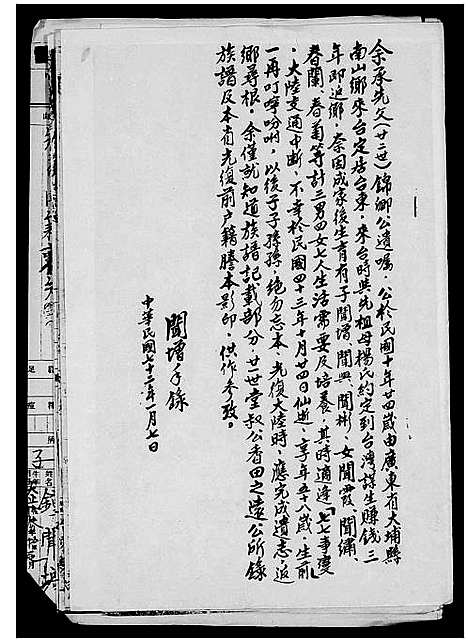 余承先父(廿二世)錦鄉公遺囑,公於民國十年廿四歲由廣東省大埔縣
南山鄉來台定居台東,來台時與先祖母楊氏約定到台灣謀生賺錢三
年即返鄉,奈因成家後生育有子聞增、聞興、聞彬、女聞霞、聞繡、
春蘭、春菊等計三男四女七人生活需要及培養,其時適逢「七七事變」
、大陸交通中斷,不幸於民國四十三年十月廿四日仙逝,享年五十八歲,生前
一再叮嚀吩咐,以後子子孫孫,絕勿忘本,光復大陸時,應完成遺志,返
鄉尋根,余僅就知道族譜記載部分廿一世堂叔公香田之遠公所錄
族譜及本省光復前戶籍謄本影印,供作參攷。
聞增手錄
中華民國七十二年一月七日